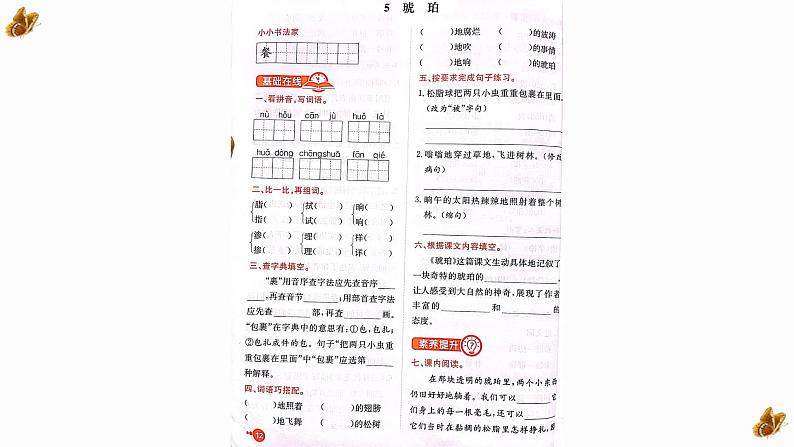 5 琥珀
小小书法家
餐
基础在线
一、看拼音,写词语。
nù hǒu cān jù huǒ là
huá dòng chōngshuā fān qié
二、比一比,再组词。
脂( ) 拭( ) 晌( )
指( ) 试( ) 响( )
渗( ) 理( ) 样( )
掺( ) 埋( ) 详( )
三、查字典填空。
“裹”用音序查字法应先查音序____
____,再查音节____;用部首查字法
应先查____部,再查____画。
“包裹”在字典中的意思有:①包,包扎;
②包扎成件的包。句子“把两只小虫重
重包裹在里面”中“包裹”应选第____
种解释。
四、词语巧搭配。
( )地照着 ( )的翅膀
( )地飞舞 ( )的松树
12
( )地腐烂 ( )的波涛
( )地吹 ( )的事情
( )地响 ( )的琥珀
五、按要求完成句子练习。
1.松脂球把两只小虫重重包裹在里面。
(改为“被”字句)
2.嗡嗡地穿过草地,飞进树林。(修改
病句)
3.晌午的太阳热辣辣地照射着整个树
林。(缩句)
六、根据课文内容填空。
《琥珀》这篇课文生动具体地记叙了
一块奇特的琥珀的____、____,
让人感受到大自然的神奇,展现了作者
丰富的____和____的
态度。
素养提升
七、课内阅读。
在那块透明的琥珀里,两个小东西
仍旧好好地躺着。我们可以____它
们身上的每一根毫毛,还可以____
它们当时在黏稠的松脂里怎样挣扎,